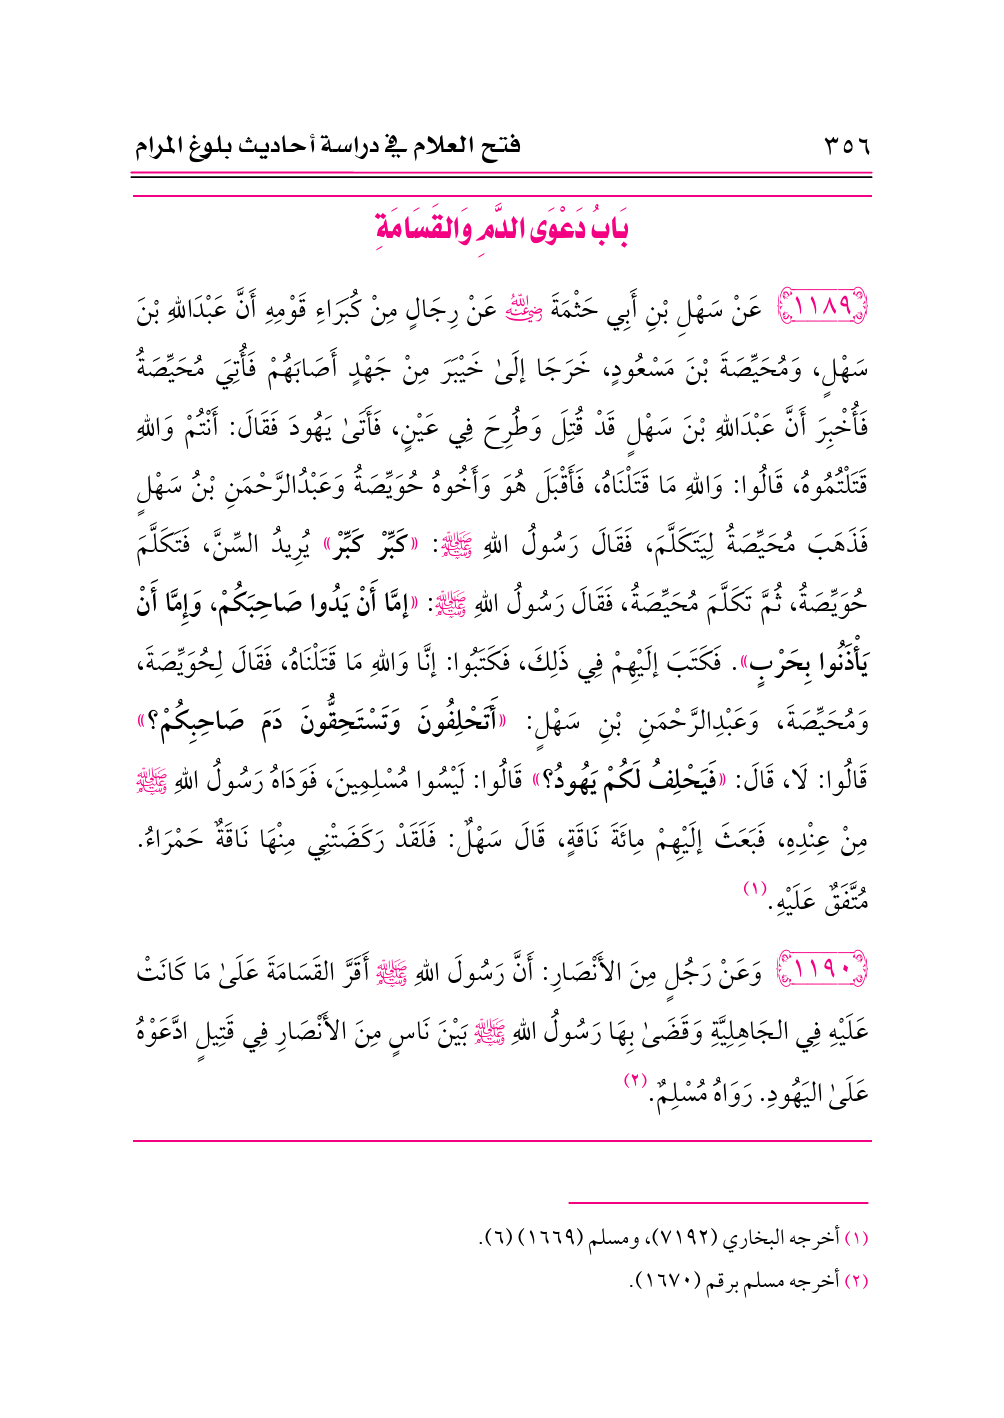 ٣٥٦ فتح العلام في دراسة أحاديث بلوغ المرام
بَابُ دَعْوَى الدَّمِ وَالقَسَامَةِ
١١٨٩ عَنْ سَهْلِ بْنِ أَبِي حَثْمَةَ رضي الله عنه عَنْ رِجَالٍ مِنْ كُبَرَاءِ قَوْمِهِ أَنَّ عَبْدَاللهِ بْنَ
سَهْلٍ، وَمُحَيِّصَةَ بْنَ مَسْعُودٍ، خَرَجَا إلَىٰ خَيْبَرَ مِنْ جَهْدٍ أَصَابَهُمْ فَأُتِيَ مُحَيِّصَةُ
فَأُخْبِرَ أَنَّ عَبْدَاللهِ بْنَ سَهْلٍ قَدْ قُتِلَ وَطُرِحَ فِي عَيْنٍ، فَأَتَىٰ يَهُودَ فَقَالَ: أَنْتُمْ وَاللهِ
قَتَلْتُمُوهُ، قَالُوا: وَاللهِ مَا قَتَلْنَاهُ، فَأَقْبَلَ هُوَ وَأَخُوهُ حُوَيِّصَةُ وَعَبْدُالرَّحْمَنِ بْنُ سَهْلٍ
فَذَهَبَ مُحَيِّصَةُ لِيَتَكَلَّمَ، فَقَالَ رَسُولُ اللهِ ﷺ: «كَبِّرْ كَبِّرْ» يُرِيدُ السِّنَّ، فَتَكَلَّمَ
حُوَيِّصَةُ، ثُمَّ تَكَلَّمَ مُحَيِّصَةُ، فَقَالَ رَسُولُ اللهِ ﷺ: «إمَّا أَنْ يَدُوا صَاحِبَكُمْ، وَإِمَّا أَنْ
يَأْذَنُوا بِحَرْبٍ». فَكَتَبَ إلَيْهِمْ فِي ذَلِكَ، فَكَتَبُوا: إنَّا وَاللهِ مَا قَتَلْنَاهُ، فَقَالَ لِحُوَيِّصَةَ،
وَمُحَيِّصَةَ، وَعَبْدِالرَّحْمَنِ بْنِ سَهْلٍ: «أَتَحْلِفُونَ وَتَسْتَحِقُّونَ دَمَ صَاحِبِكُمْ؟»
قَالُوا: لَا، قَالَ: «فَيَحْلِفُ لَكُمْ يَهُودُ؟» قَالُوا: لَيْسُوا مُسْلِمِينَ، فَوَدَاهُ رَسُولُ اللهِ ﷺ
مِنْ عِنْدِهِ، فَبَعَثَ إلَيْهِمْ مِائَةَ نَاقَةٍ، قَالَ سَهْلٌ: فَلَقَدْ رَكَضَتْنِي مِنْهَا نَاقَةٌ حَمْرَاءُ.
مُتَّفَقٌ عَلَيْهِ.(١)
١١٩٠ وَعَنْ رَجُلٍ مِنَ الأَنْصَارِ: أَنَّ رَسُولَ اللهِ ﷺ أَقَرَّ القَسَامَةَ عَلَىٰ مَا كَانَتْ
عَلَيْهِ فِي الجَاهِلِيَّةِ وَقَضَىٰ بِهَا رَسُولُ اللهِ ﷺ بَيْنَ نَاسٍ مِنَ الأَنْصَارِ فِي قَتِيلٍ ادَّعَوْهُ
عَلَىٰ اليَهُودِ. رَوَاهُ مُسْلِمٌ.(٢)
(١) أخرجه البخاري (٧١٩٢)، ومسلم (١٦٦٩) (٦).
(٢) أخرجه مسلم برقم (١٦٧٠).